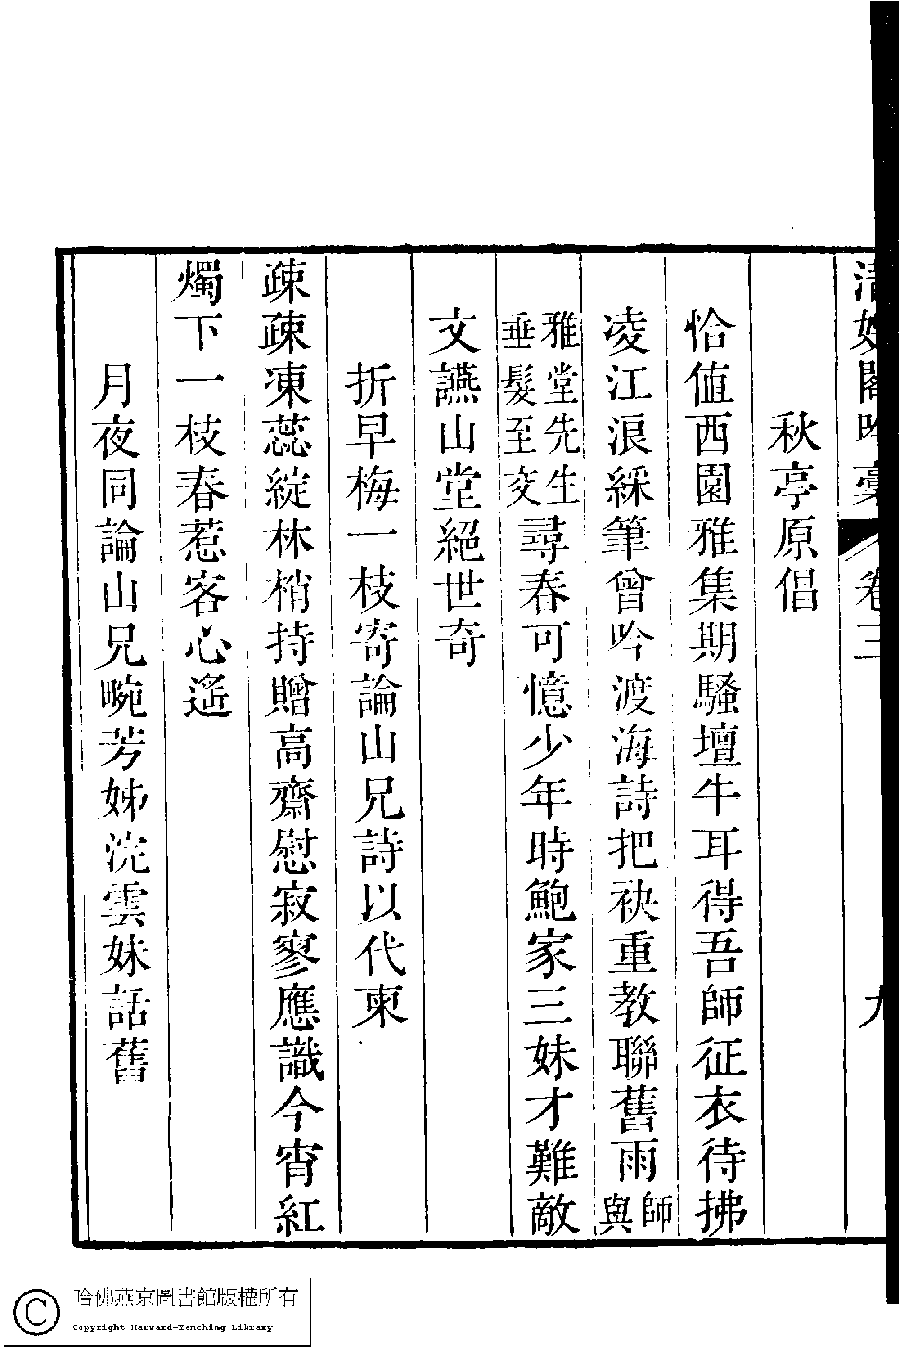 清娛閣吟稾 卷三 九
秋亭原倡
恰値西園雅集期騷壇牛耳得吾師征衣待拂
凌江浪綵筆曾吟渡海詩把袂重教聯舊雨師與
雅堂先生垂髮至交尋春可憶少年時鮑家三妹才難敵
文讌山堂絕世奇
折早梅一枝寄論山兄詩以代柬
疎疎凍蕊綻林梢持贈高齋慰寂寥應識今宵紅
燭下一枝春惹客心遙
月夜同論山兄畹芳姊浣雲妹話舊
哈佛燕京圖書館版權所有
Copyright Harvard-Yenching Library